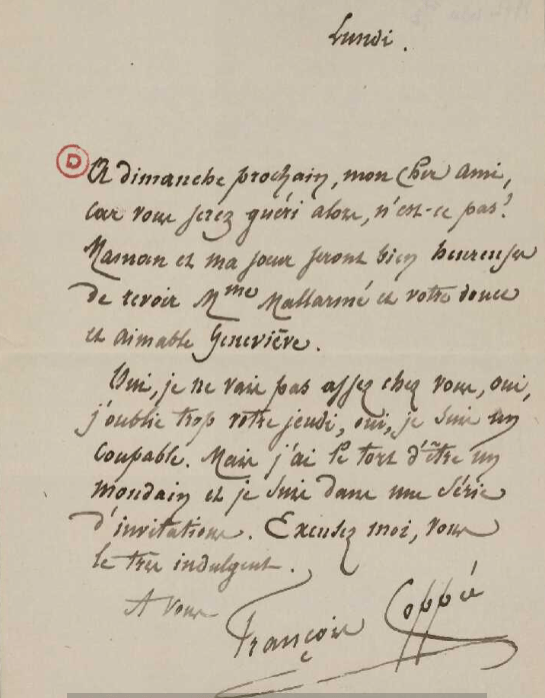 Lundi.
D
A dimanche prochain, mon cher ami,
car vous serez guéri alors, n'est-ce pas?
Maman et ma sœur seront bien heureuses
de revoir Mme Mallarmé et votre douce
et aimable Geneviève.
Oui, je ne vais pas assez chez vous, oui,
j'oublie trop votre jeudi, oui, je suis un
coupable. Mais j'ai le tort d'être un
mondain et je suis dans une série
d'invitations. Excusez moi, vous
le très indulgent.
A vous
François Coppée